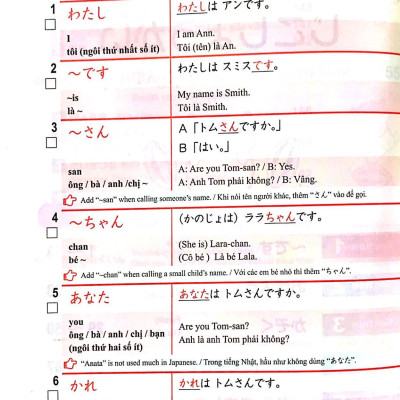 1 わたし わたしは アンです。
I I am Ann.
tôi (ngôi thứ nhất số ít) Tôi (tên) là An.
2 ～です わたしは スミスです。
~is My name is Smith.
là ~ Tôi là Smith.
3 ～さん A「トムさんですか。」
B「はい。」
san A: Are you Tom-san? / B: Yes.
ông / bà / anh /chị ~ A: Anh Tom phải không? / B: Vâng.
Add "~san" when calling someone's name. / Khi nói tên người khác, thêm "さん" vào để gọi.
4 ～ちゃん (かのじょは) ララちゃんです。
chan (She is) Lara-chan.
bé ~ (Cô bé ) Là bé Lala.
Add "~chan" when calling a small child's name. / Với các em bé nhỏ thì thêm "ちゃん".
5 あなた あなたは トムさんですか。
you Are you Tom-san?
ông / bà / anh / chị / bạn Anh là anh Tom phải không?
(ngôi thứ hai số ít)
"Anata" is not used much in Japanese. / Trong tiếng Nhật, hầu như không dùng "あなた".
6 かれ かれは トムさんです。